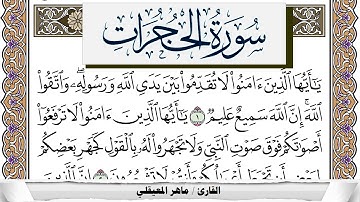 سُورَةُ الحُجُرَاتِ
يَـٰٓأَيُّهَا ٱلَّذِينَ ءَامَنُوا۟ لَا تُقَدِّمُوا۟ بَيْنَ يَدَىِ ٱللَّهِ وَرَسُولِهِۦ ۖ وَٱتَّقُوا۟
ٱللَّهَ ۚ إِنَّ ٱللَّهَ سَمِيعٌ عَلِيمٌ ١ يَـٰٓأَيُّهَا ٱلَّذِينَ ءَامَنُوا۟ لَا تَرْفَعُوٓا۟
أَصْوَٰتَكُمْ فَوْقَ صَوْتِ ٱلنَّبِىِّ وَلَا تَجْهَرُوا۟ لَهُۥ بِٱلْقَوْلِ كَجَهْرِ بَعْضِكُمْ
القارئ / ماهر المعيقلي